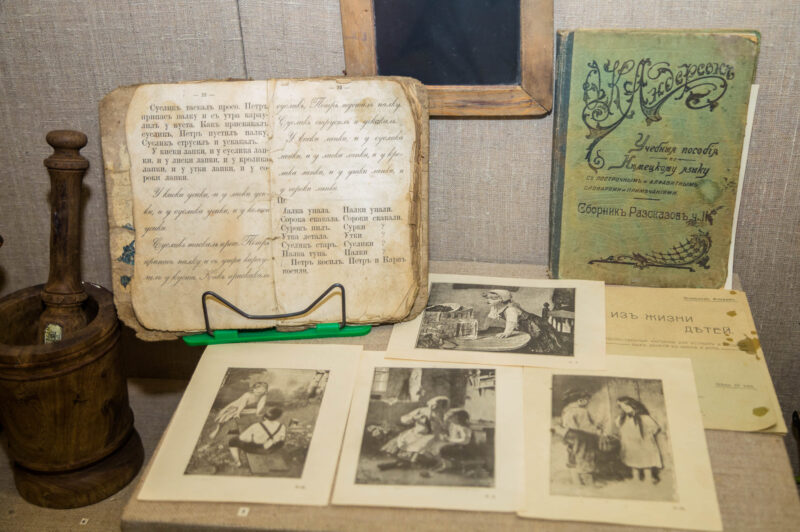 — 22 —
Сусликъ таскалъ просо. Петръ
припасъ палку и съ утра карау-
лилъ у куста. Какъ прискакалъ
сусликъ, Петръ пустилъ палку.
Сусликъ струсилъ и ускакалъ.
У киски лапки, и у суслика лап-
ки, и у лиски лапки, и у кролика
лапки, и у утки лапки, и у со-
роки лапки.
У киски усики, и у лиски уси-
ки, и у суслика усики, и у
усики.
Сусликъ таскалъ просо. Петръ
припасъ палку и съ утра карау-
лилъ у куста. Какъ прискакалъ
— 23 —
сусликъ, Петръ пустилъ палку.
Сусликъ струсилъ и ускакалъ.
У киски лапки, и у суслика
лапки, и у лиски лапки, и у кро-
лика лапки, и у утки лапки,
и у сороки лапки.
Палка упала. Палки упали.
Сорока скакала. Сороки скакали.
Сурокъ пилъ. Сурки ?
Утка летала. Утки ?
Сусликъ старъ. Суслики ?
Палка тупа. Палки ?
Петръ косилъ. Петръ и Карпъ
косили.
К Андерсонъ
Учебныя пособія
по
Нѣмецкому языку
съ построчнымъ и алфавитнымъ
словарями и примѣчаніями.
Сборникъ Разсказовъ ч. II
ИЗЪ ЖИЗНИ
ДѢТЕЙ